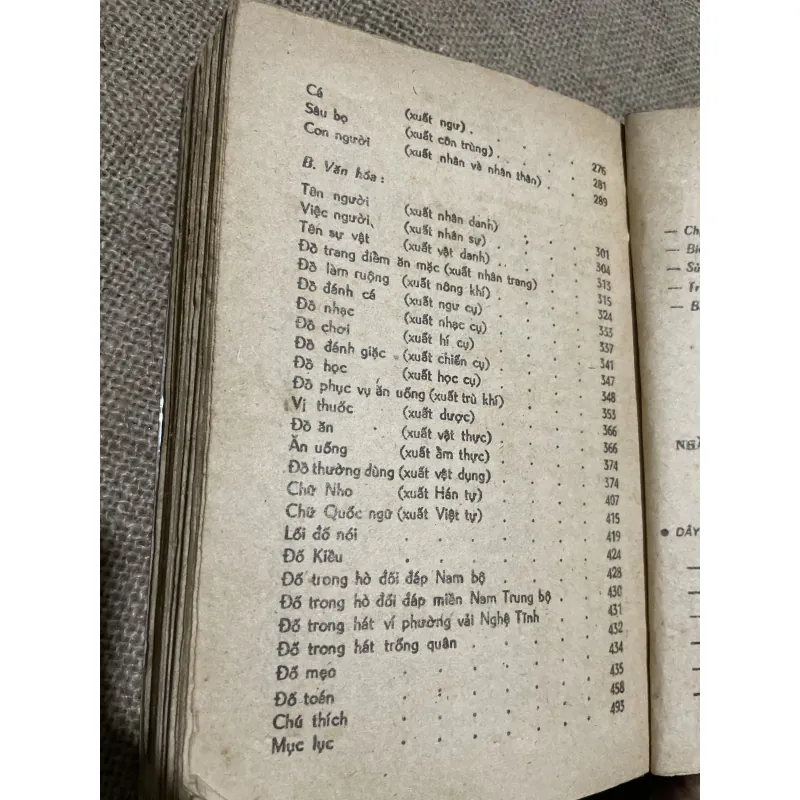 Cá (xuất ngư) . . . . . 276
Sâu bọ (xuất côn trùng) . . . . . 281
Con người (xuất nhân và nhân thân) . . . 289
B. Văn hóa :
Tên người (xuất nhân danh) . . . . 301
Việc người, (xuất nhân sự) . . . . 304
Tên sự vật (xuất vật danh) . . . . 313
Đồ trang điểm ăn mặc (xuất nhân trang) . . . 315
Đồ làm ruộng (xuất nông khí) . . . . 324
Đồ đánh cá (xuất ngư cụ) . . . . 333
Đồ nhạc (xuất nhạc cụ) . . . . 337
Đồ chơi (xuất hí cụ) . . . . 341
Đồ đánh giặc (xuất chiến cụ) . . . . 347
Đồ học (xuất học cụ) . . . . 348
Đồ phục vụ ăn uống (xuất trù khí) . . . . 353
Vị thuốc (xuất dược) . . . . 366
Đồ ăn (xuất vật thực) . . . . 366
Ăn uống (xuất ẩm thực) . . . . 374
Đồ thường dùng (xuất vật dụng) . . . . 374
Chữ Nho (xuất Hán tự) . . . . 407
Chữ Quốc ngữ (xuất Việt tự) . . . . 415
Lối đố nói . . . . . . 419
Đố Kiều . . . . . . 424
Đố trong hò đối đáp Nam bộ . . . . 428
Đố trong hò đối đáp miền Nam Trung bộ . . . 430
Đố trong hát ví phường vải Nghệ Tĩnh . . . 431
Đố trong hát trống quân . . . . . 432
Đố mẹo . . . . . . 434
Đố toán . . . . . . 435
Chú thích . . . . . . 458
Mục lục . . . . . . 493
— Ch
— Bi
— Sử
— Tr
— B
NHÀ
● DÂY